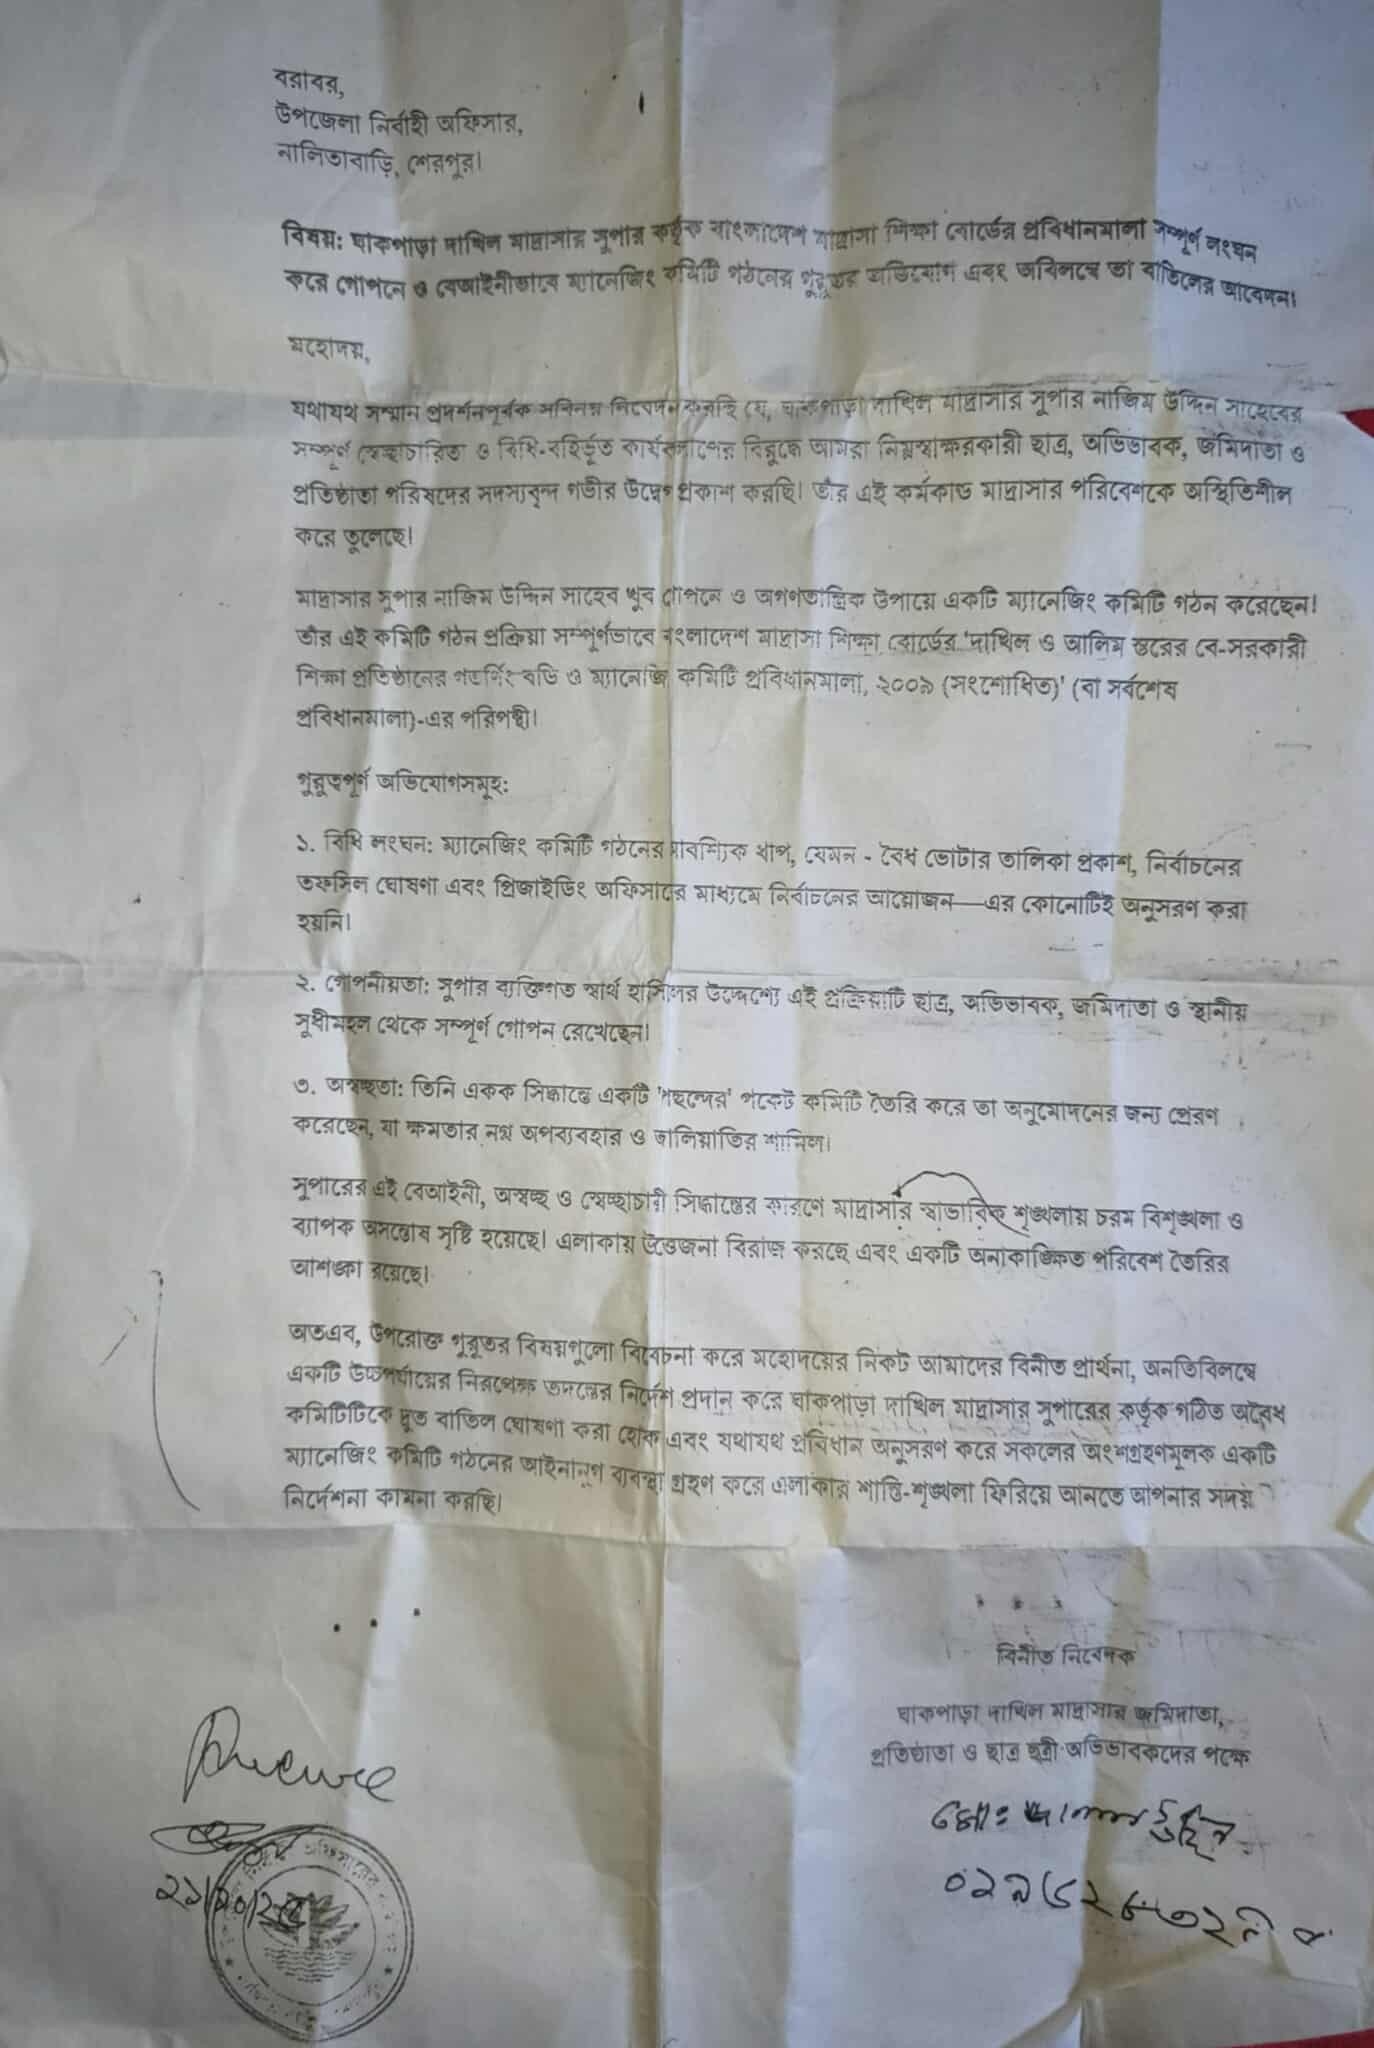 বরাবর,
উপজেলা নির্বাহী অফিসার,
নালিতাবাড়ি, শেরপুর।
বিষয়: ঘাকপাড়া দাখিল মাদ্রাসার সুপার কর্তৃক বাংলাদেশ মাদ্রাসা শিক্ষা বোর্ডের প্রবিধানমালা সম্পূর্ণ লংঘন
করে গোপনে ও বেআইনীভাবে ম্যানেজিং কমিটি গঠনের গুরুতর অভিযোগ এবং অবিলম্বে তা বাতিলের আবেদন।
মহোদয়,
যথাযথ সম্মান প্রদর্শনপূর্বক সবিনয় নিবেদন করছি যে, ঘাকপাড়া দাখিল মাদ্রাসার সুপার নাজিম উদ্দিন সাহেবের
সম্পূর্ণ স্বেচ্ছাচারিতা ও বিধি-বহির্ভূত কার্যকলাপের বিরুদ্ধে আমরা নিম্নস্বাক্ষরকারী ছাত্র, অভিভাবক, জমিদাতা ও
প্রতিষ্ঠাতা পরিষদের সদস্যবৃন্দ গভীর উদ্বেগ প্রকাশ করছি। তাঁর এই কর্মকান্ড মাদ্রাসার পরিবেশকে অস্থিতিশীল
করে তুলেছে।
মাদ্রাসার সুপার নাজিম উদ্দিন সাহেব খুব গোপনে ও অগণতান্ত্রিক উপায়ে একটি ম্যানেজিং কমিটি গঠন করেছেন।
তাঁর এই কমিটি গঠন প্রক্রিয়া সম্পূর্ণভাবে বাংলাদেশ মাদ্রাসা শিক্ষা বোর্ডের 'দাখিল ও আলিম স্তরের বে-সরকারী
শিক্ষা প্রতিষ্ঠানের গভর্ণিং বডি ও ম্যানেজি কমিটি প্রবিধানমালা, ২০০৯ (সংশোধিত)' (বা সর্বশেষ
প্রবিধানমালা)-এর পরিপন্থী।
গুরুত্বপূর্ণ অভিযোগসমূহ:
১. বিধি লংঘন: ম্যানেজিং কমিটি গঠনের আবশ্যিক ধাপ, যেমন - বৈধ ভোটার তালিকা প্রকাশ, নির্বাচনের
তফসিল ঘোষণা এবং প্রিজাইডিং অফিসারের মাধ্যমে নির্বাচনের আয়োজন—এর কোনোটিই অনুসরণ করা
হয়নি।
২. গোপনীয়তা: সুপার ব্যক্তিগত স্বার্থ হাসিলের উদ্দেশ্যে এই প্রক্রিয়াটি ছাত্র, অভিভাবক, জমিদাতা ও স্থানীয়
সুধীমহল থেকে সম্পূর্ণ গোপন রেখেছেন।
৩. অস্বচ্ছতা: তিনি একক সিদ্ধান্তে একটি 'পছন্দের' পকেট কমিটি তৈরি করে তা অনুমোদনের জন্য প্রেরণ
করেছেন, যা ক্ষমতার নগ্ন অপব্যবহার ও জালিয়াতির শামিল।
সুপারের এই বেআইনী, অস্বচ্ছ ও স্বেচ্ছাচারী সিদ্ধান্তের কারণে মাদ্রাসার স্বাভাবিক শৃঙ্খলায় চরম বিশৃঙ্খলা ও
ব্যাপক অসন্তোষ সৃষ্টি হয়েছে। এলাকায় উত্তেজনা বিরাজ করছে এবং একটি অনাকাঙ্ক্ষিত পরিবেশ তৈরির
আশঙ্কা রয়েছে।
অতএব, উপরোক্ত গুরুতর বিষয়গুলো বিবেচনা করে মহোদয়ের নিকট আমাদের বিনীত প্রার্থনা, অনতিবিলম্বে
একটি উচ্চপর্যায়ের নিরপেক্ষ তদন্তের নির্দেশ প্রদান করে ঘাকপাড়া দাখিল মাদ্রাসার সুপারের কর্তৃক গঠিত অবৈধ
কমিটিটিকে দ্রুত বাতিল ঘোষণা করা হোক এবং যথাযথ প্রবিধান অনুসরণ করে সকলের অংশগ্রহণমূলক একটি
ম্যানেজিং কমিটি গঠনের আইনানুগ ব্যবস্থা গ্রহণ করে এলাকার শান্তি-শৃঙ্খলা ফিরিয়ে আনতে আপনার সদয়
নির্দেশনা কামনা করছি।
বিনীত নিবেদক
ঘাকপাড়া দাখিল মাদ্রাসার জমিদাতা,
প্রতিষ্ঠাতা ও ছাত্র ছত্রী অভিভাবকদের পক্ষে
মোঃ